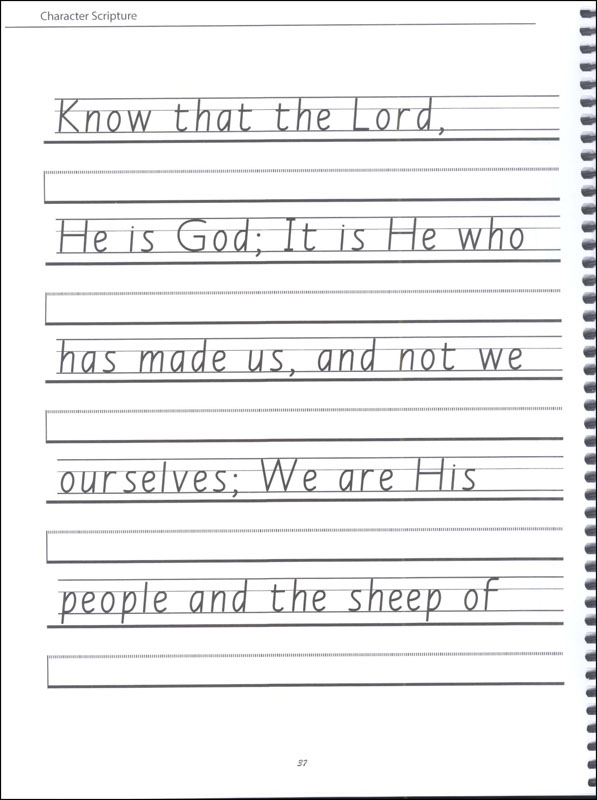 Character Scripture
Know that the Lord,
He is God; It is He who
has made us, and not we
ourselves; We are His
people and the sheep of
37